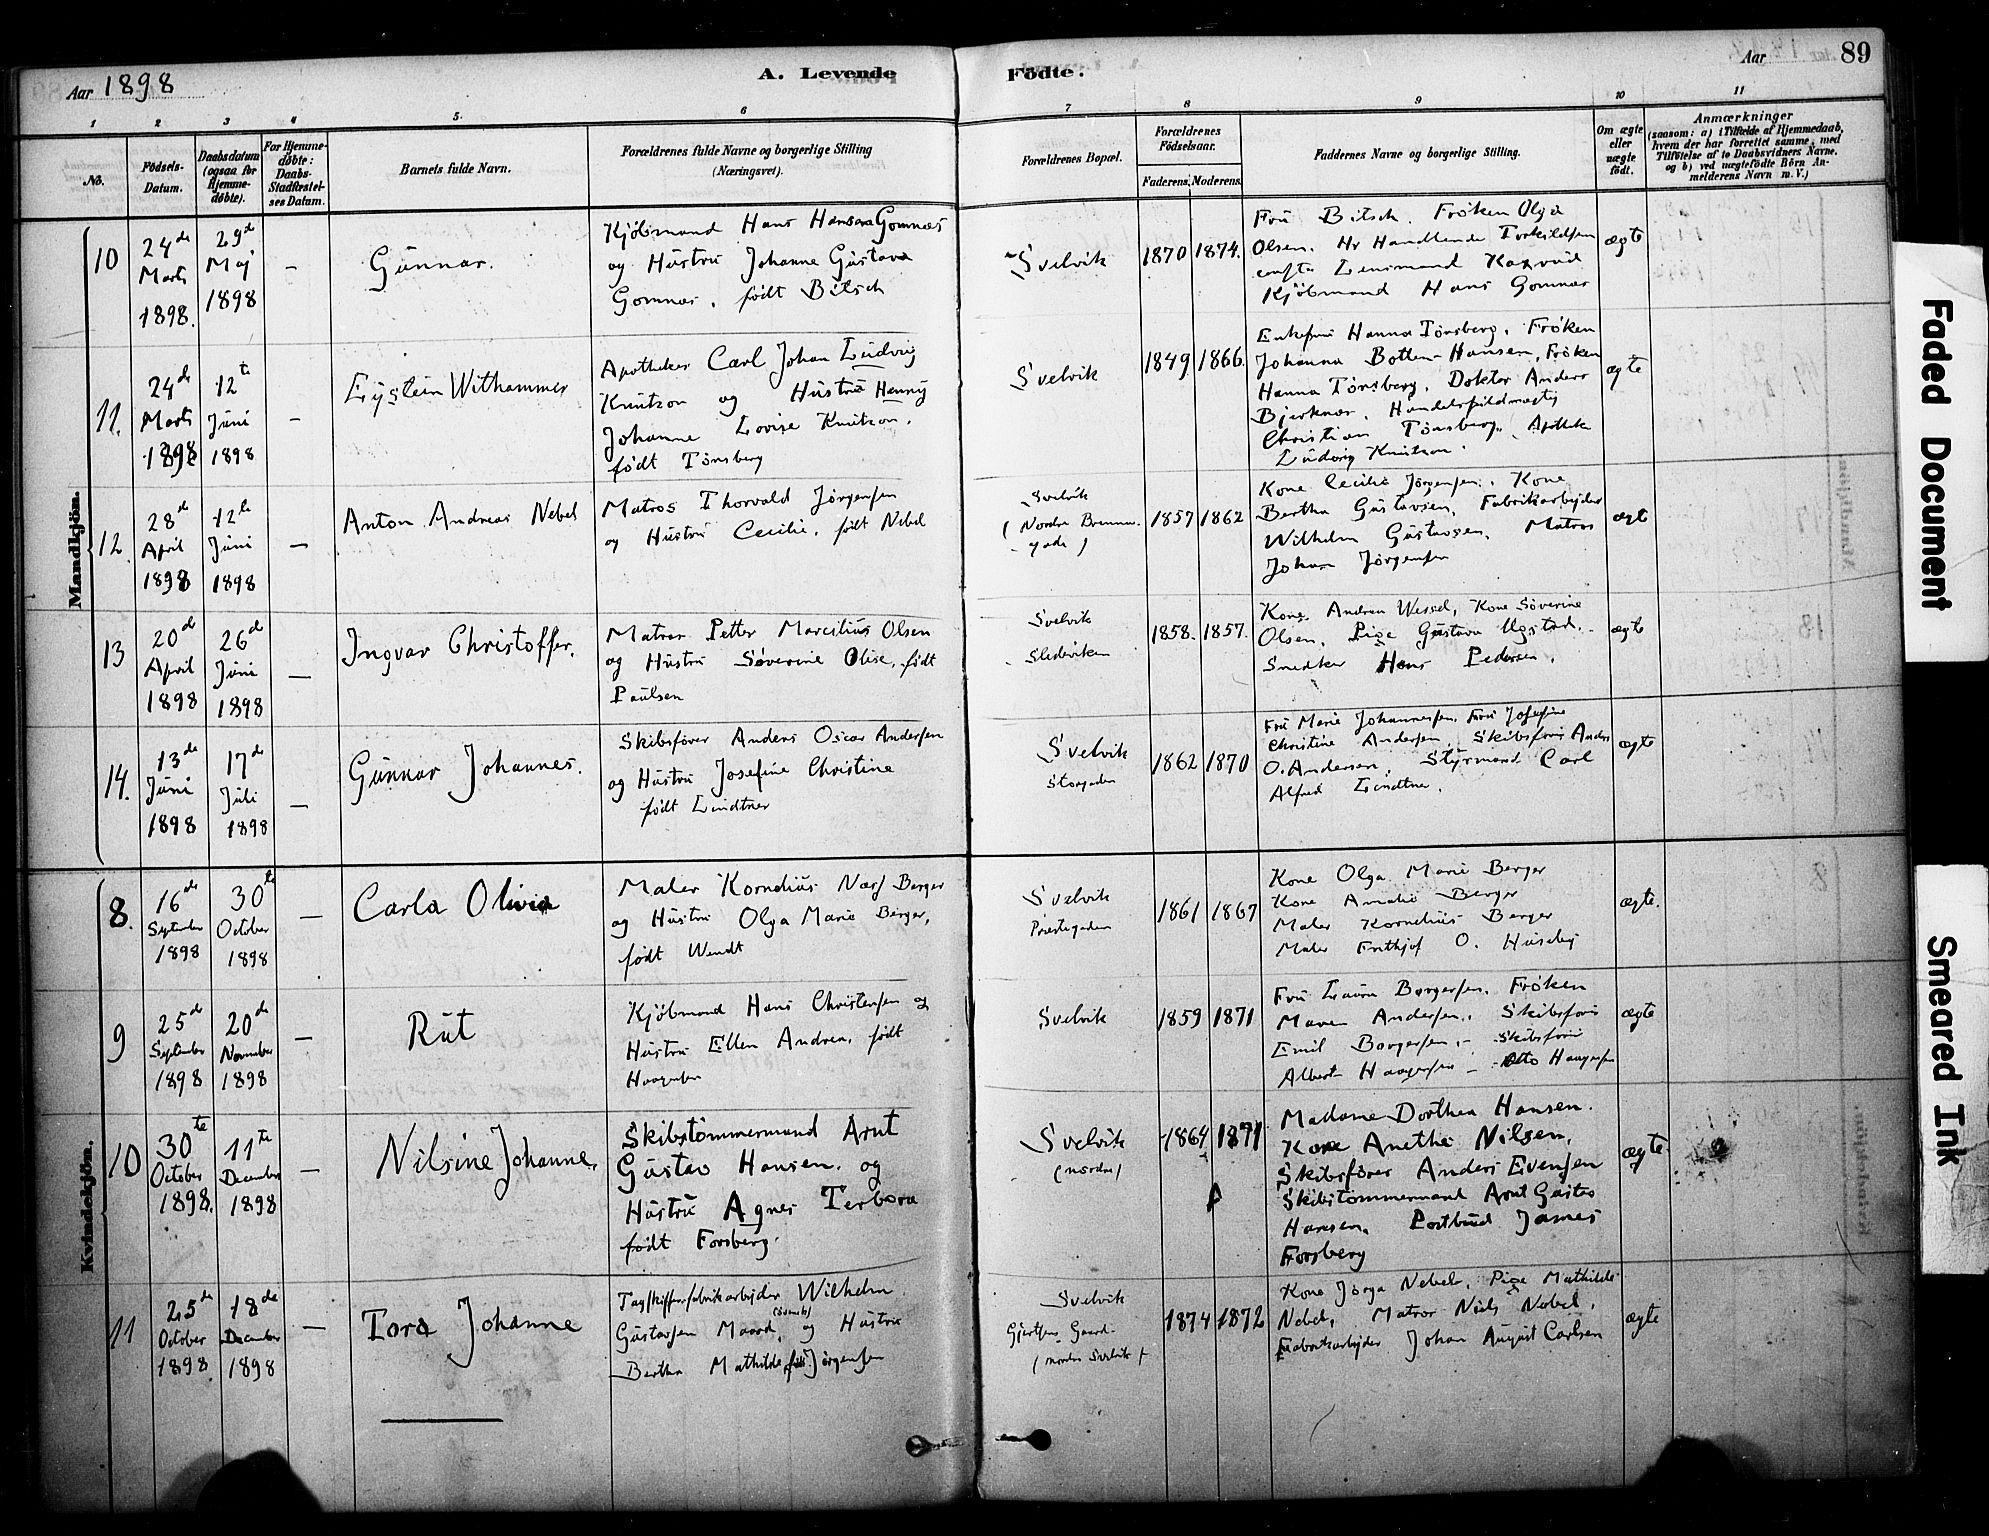 Aar 1898
A. Levende Födte.
Aar
89
1 2 3 4 5. 6 7 8 9 10 11
No.
Födsels-Datum.
Daabsdatum (ogsaa for Hjemme-döbte).
For Hjemme-döbte: Daabs-Stadfæstel-ses Datum.
Barnets fulde Navn.
Forældrenes fulde Navne og borgerlige Stilling (Næringsvei).
Forældrenes Bopæl.
Forældrenes Födselsaar.
Faderens. Moderens.
Faddernes Navne og borgerlige Stilling.
Om ægte eller uægte födt.
Anmærkninger
(saasom: a) i Tilfælde af Hjemmedaab,
hvem der har forrettet samme, med
Tilföielse af to Daabsvidners Navne.
og b) ved uægtefödte Börn An-
melderens Navn m. V.)
Mandkjön.
10
24de Marts 1898.
29de Maj 1898
-
Gunnar.
Kjöbmand Hans Hansen Gomnæs
og Hustru Johanne Gustava
Gomnæs, født Bitsch
Svelvik
1870 1874.
Fru Bitsch. Frøken Olga
Olsen. Hr Handlende Torkildsen
Lensmand
Kjöbmand Hans Gomnæs
ægte
11.
24de Marts 1898
12te Juni 1898
-
Eystein Withammer
Apotheker Carl Johan Ludvig
Knutzon og Hustru Henny
Johanne Lovise Knutzon,
født Tönsberg
Svelvik
1849 1866.
Enkefru Hanna Tönsberg, Fröken
Johanna Botten-Hansen, Fröken
Hanna Tönsberg, Doktor Anders
Bjerknæs, Handelsfuldmægtig
Christian Tönsberg, Apothek
Ludvig Knutzon.
ægte
12
28de April 1898
12te Juni 1898
-
Anton Andreas Nebel
Matros Thorvald Jörgensen
og Hustru Cecilie, født Nebel
Svelvik
(Nordre
gade)
1857 1862
Kone Cecilie Jörgensen, Kone
Bertha Gustavsen, Fabrikarbejder
Wilhelm Gustavsen, Matros
Johan Jörgensen
ægte
13
20de April 1898
26de Juni 1898
-
Ingvar Christoffer.
Matros Petter Marcilius Olsen
og Hustru Söverine Olise, født
Paulsen
Svelvik
Sledeviken
1858. 1857.
Kone Andrea Wessel, Kone Söverine
Olsen, Pige Gustava Ugstad,
Snedker Hans Pedersen.
ægte
14.
13de Juni 1898
17de Juli 1898
-
Gunnar Johannes.
Skibsförer Anders Oscar Andersen
og Hustru Josefine Christine
født Lindtner
Svelvik
Storgaden
1862 1870
Fru Marie Johannessen, Fru Josefine
Christine Andersen, Skibsförer Anders
O. Andersen, Styrmand Carl
Alfred Lindtner.
ægte
Kvindekjön.
8.
16de September 1898
30te October 1898
-
Carla Olivia
Maler Kornelius Berger
og Hustru Olga Marie Berger,
født Wendt
Svelvik
Prestegaden
1861 1867
Kone Olga Marie Berger
Kone Amalie Berger
Maler Kornelius Berger
Maler Frithjof O. Huseby
ægte.
9
25de September 1898
20de November 1898
-
Rut
Kjöbmand Hans Christensen og
Hustru Ellen Andrea, født
Svelvik
1859 1871
Fru Laura Borgersen. Fröken
Maren Andersen, Skibsförer
Emil Borgersen, Skibsförer
Albert Haagensen - Otto Haagensen
ægte
10
30te October 1898.
11te December 1898
-
Nilsine Johanne.
Skibstömmermand Arnt
Gustav Hansen og
Hustru Agnes Terbora
født Forsberg.
Svelvik
(nordre)
1864 1871
Madame Dorthea Hansen.
Kone Anethe Nilsen,
Skibsförer Anders Evensen
Skibstömmermand Arnt Gustav
Hansen, Postbud James
Forsberg
ægte
11
25de October 1898
18de December 1898
-
Tora Johanne
Tagskifferfabrikarbejder Wilhelm
Gustavsen (svensk) og Hustru
Bertha Mathilde født Jörgensen
Svelvik
Gjertsens Gaard
(nordre Svelvik)
1874 1872
Kone Jörga Nebel, Pige Mathilde
Nebel, Matros Niels Nebel,
Fabrikarbejder Johan August Carlsen
ægte
Faded Document
Smeared Ink